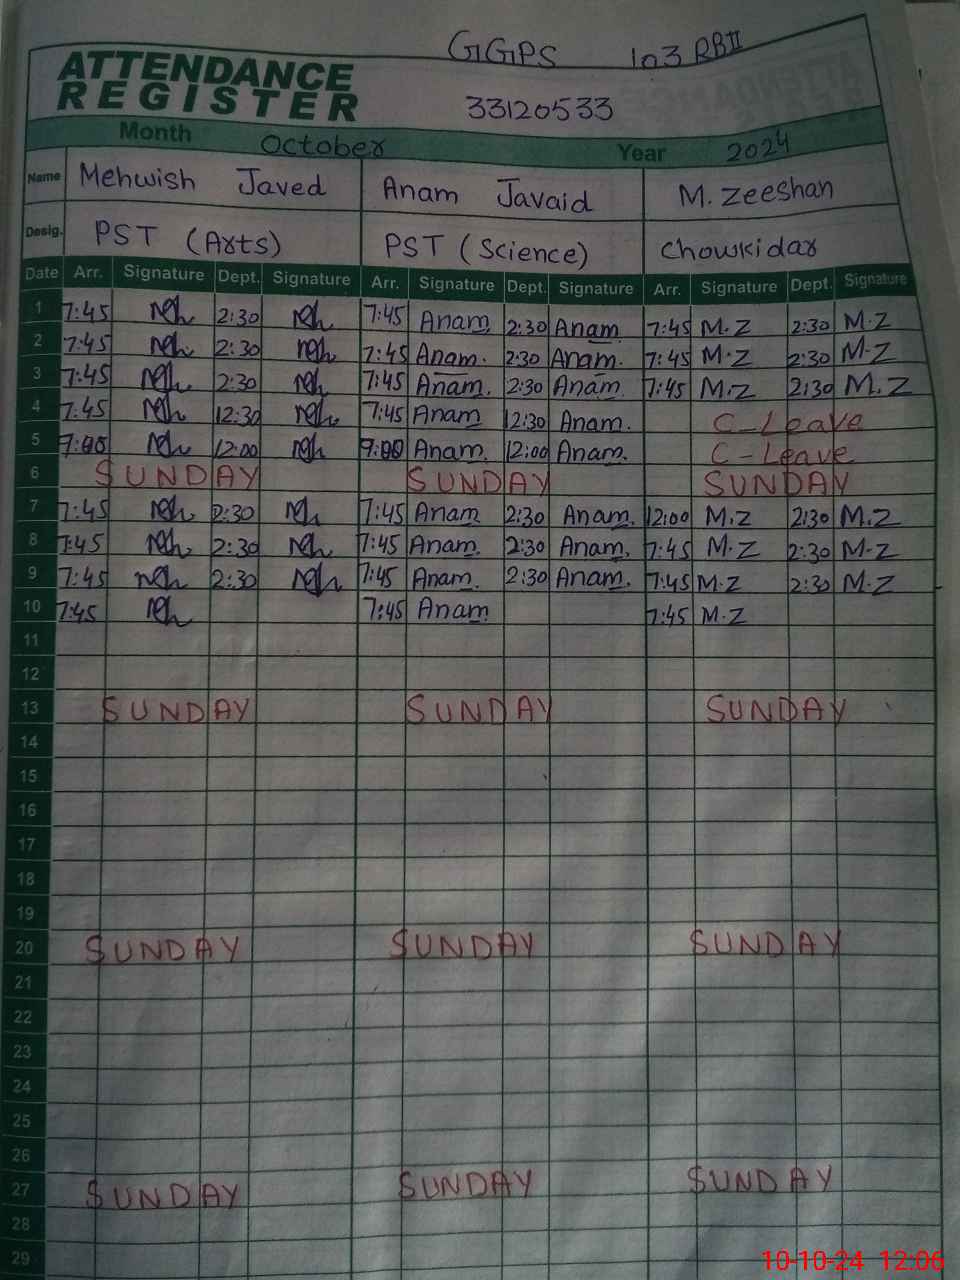 GGPS 103 RB II
ATTENDANCE
REGISTER 33120533
Month October Year 2024
Name Mehwish Javed Anam Javaid M. Zeeshan
Desig. PST (Arts) PST (Science) Chowkidar
Date Arr. Signature Dept. Signature Arr. Signature Dept. Signature Arr. Signature Dept. Signature
1 7:45 2:30 7:45 Anam 2:30 Anam 7:45 M.Z 2:30 M.Z
2 7:45 2:30 7:45 Anam. 2:30 Anam. 7:45 M.Z 2:30 M.Z
3 7:45 2:30 7:45 Anam. 2:30 Anam. 7:45 M.Z 2:30 M.Z
4 7:45 12:30 7:45 Anam 12:30 Anam. C-Leave
5 7:00 12:00 7:00 Anam. 12:00 Anam. C-Leave
6 SUNDAY SUNDAY SUNDAY
7 7:45 2:30 7:45 Anam 2:30 Anam. 12:00 M.Z 2:30 M.Z
8 7:45 2:30 7:45 Anam. 2:30 Anam. 7:45 M.Z 2:30 M.Z
9 7:45 2:30 7:45 Anam. 2:30 Anam. 7:45 M.Z 2:30 M.Z
10 7:45 7:45 Anam 7:45 M.Z
11
12
13 SUNDAY SUNDAY SUNDAY
14
15
16
17
18
19
20 SUNDAY SUNDAY SUNDAY
21
22
23
24
25
26
27 SUNDAY SUNDAY SUNDAY
28
29
10-10-24 12:06